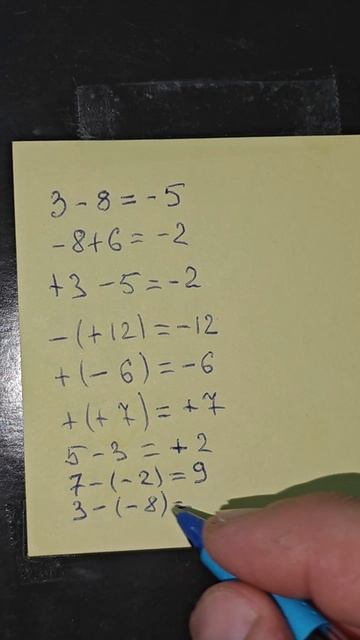 3 - 8 = - 5
-8+6 = -2
+3 - 5 = -2
-(+12) = -12
+(- 6) = -6
+(+ 7) = +7
5 - 3 = + 2
7 - (-2) = 9
3 - (-8) =